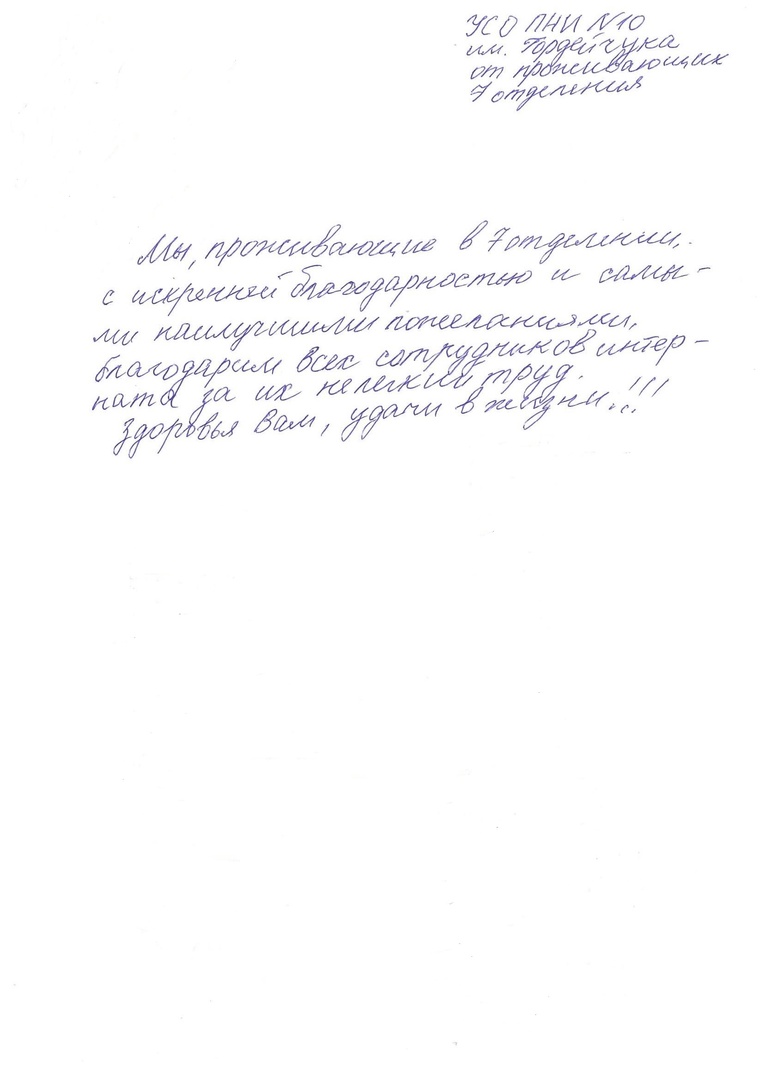 УСО ПНИ N10
им. Гордейчука
от проживающих
7 отделения
Мы, проживающие в 7 отделении,
с искренней благодарностью и самы-
ми наилучшими пожеланиями,
благодарим всех сотрудников интер-
ната за их нелегкий труд.
Здоровья Вам, удачи в жизни...!!!